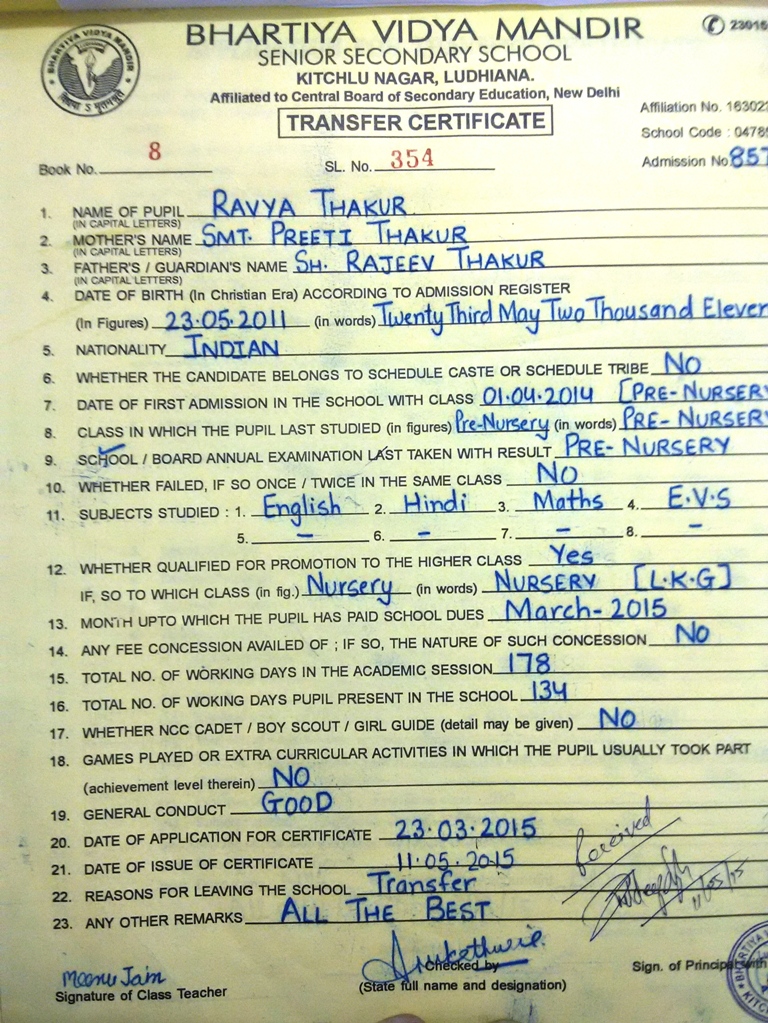 BHARTIYA VIDYA MANDIR
BHARTIYA VIDYA MANDIR
SENIOR SECONDARY SCHOOL
KITCHLU NAGAR, LUDHIANA.
Affiliated to Central Board of Secondary Education, New Delhi
TRANSFER CERTIFICATE
Affiliation No. 16302
School Code : 0478
Book No. 8 SL. No. 354 Admission No 857
1. NAME OF PUPIL RAVYA THAKUR
(IN CAPITAL LETTERS)
2. MOTHER'S NAME SMT. PREETI THAKUR
(IN CAPITAL LETTERS)
3. FATHER'S / GUARDIAN'S NAME SH. RAJEEV THAKUR
(IN CAPITAL LETTERS)
4. DATE OF BIRTH (In Christian Era) ACCORDING TO ADMISSION REGISTER
(In Figures) 23.05.2011 (in words) Twenty Third May Two Thousand Eleven
5. NATIONALITY INDIAN
6. WHETHER THE CANDIDATE BELONGS TO SCHEDULE CASTE OR SCHEDULE TRIBE NO
7. DATE OF FIRST ADMISSION IN THE SCHOOL WITH CLASS 01.04.2014 [PRE-NURSERY
8. CLASS IN WHICH THE PUPIL LAST STUDIED (in figures) Pre-Nursery (in words) PRE-NURSERY
9. SCHOOL / BOARD ANNUAL EXAMINATION LAST TAKEN WITH RESULT PRE-NURSERY
10. WHETHER FAILED, IF SO ONCE / TWICE IN THE SAME CLASS NO
11. SUBJECTS STUDIED : 1. English 2. Hindi 3. Maths 4. E.V.S
5. - 6. - 7. - 8. -
12. WHETHER QUALIFIED FOR PROMOTION TO THE HIGHER CLASS Yes
IF, SO TO WHICH CLASS (in fig.) Nursery (in words) NURSERY [L.K.G]
13. MONTH UPTO WHICH THE PUPIL HAS PAID SCHOOL DUES March-2015
14. ANY FEE CONCESSION AVAILED OF ; IF SO, THE NATURE OF SUCH CONCESSION NO
15. TOTAL NO. OF WORKING DAYS IN THE ACADEMIC SESSION 178
16. TOTAL NO. OF WOKING DAYS PUPIL PRESENT IN THE SCHOOL 134
17. WHETHER NCC CADET / BOY SCOUT / GIRL GUIDE (detail may be given) NO
18. GAMES PLAYED OR EXTRA CURRICULAR ACTIVITIES IN WHICH THE PUPIL USUALLY TOOK PART
(achievement level therein) NO
19. GENERAL CONDUCT GOOD
20. DATE OF APPLICATION FOR CERTIFICATE 23.03.2015
21. DATE OF ISSUE OF CERTIFICATE 11.05.2015
Received
22. REASONS FOR LEAVING THE SCHOOL Transfer
11/05/15
23. ANY OTHER REMARKS ALL THE BEST
Meenu Jain
Signature of Class Teacher
Checked by
(State full name and designation)
Sign. of Principal with